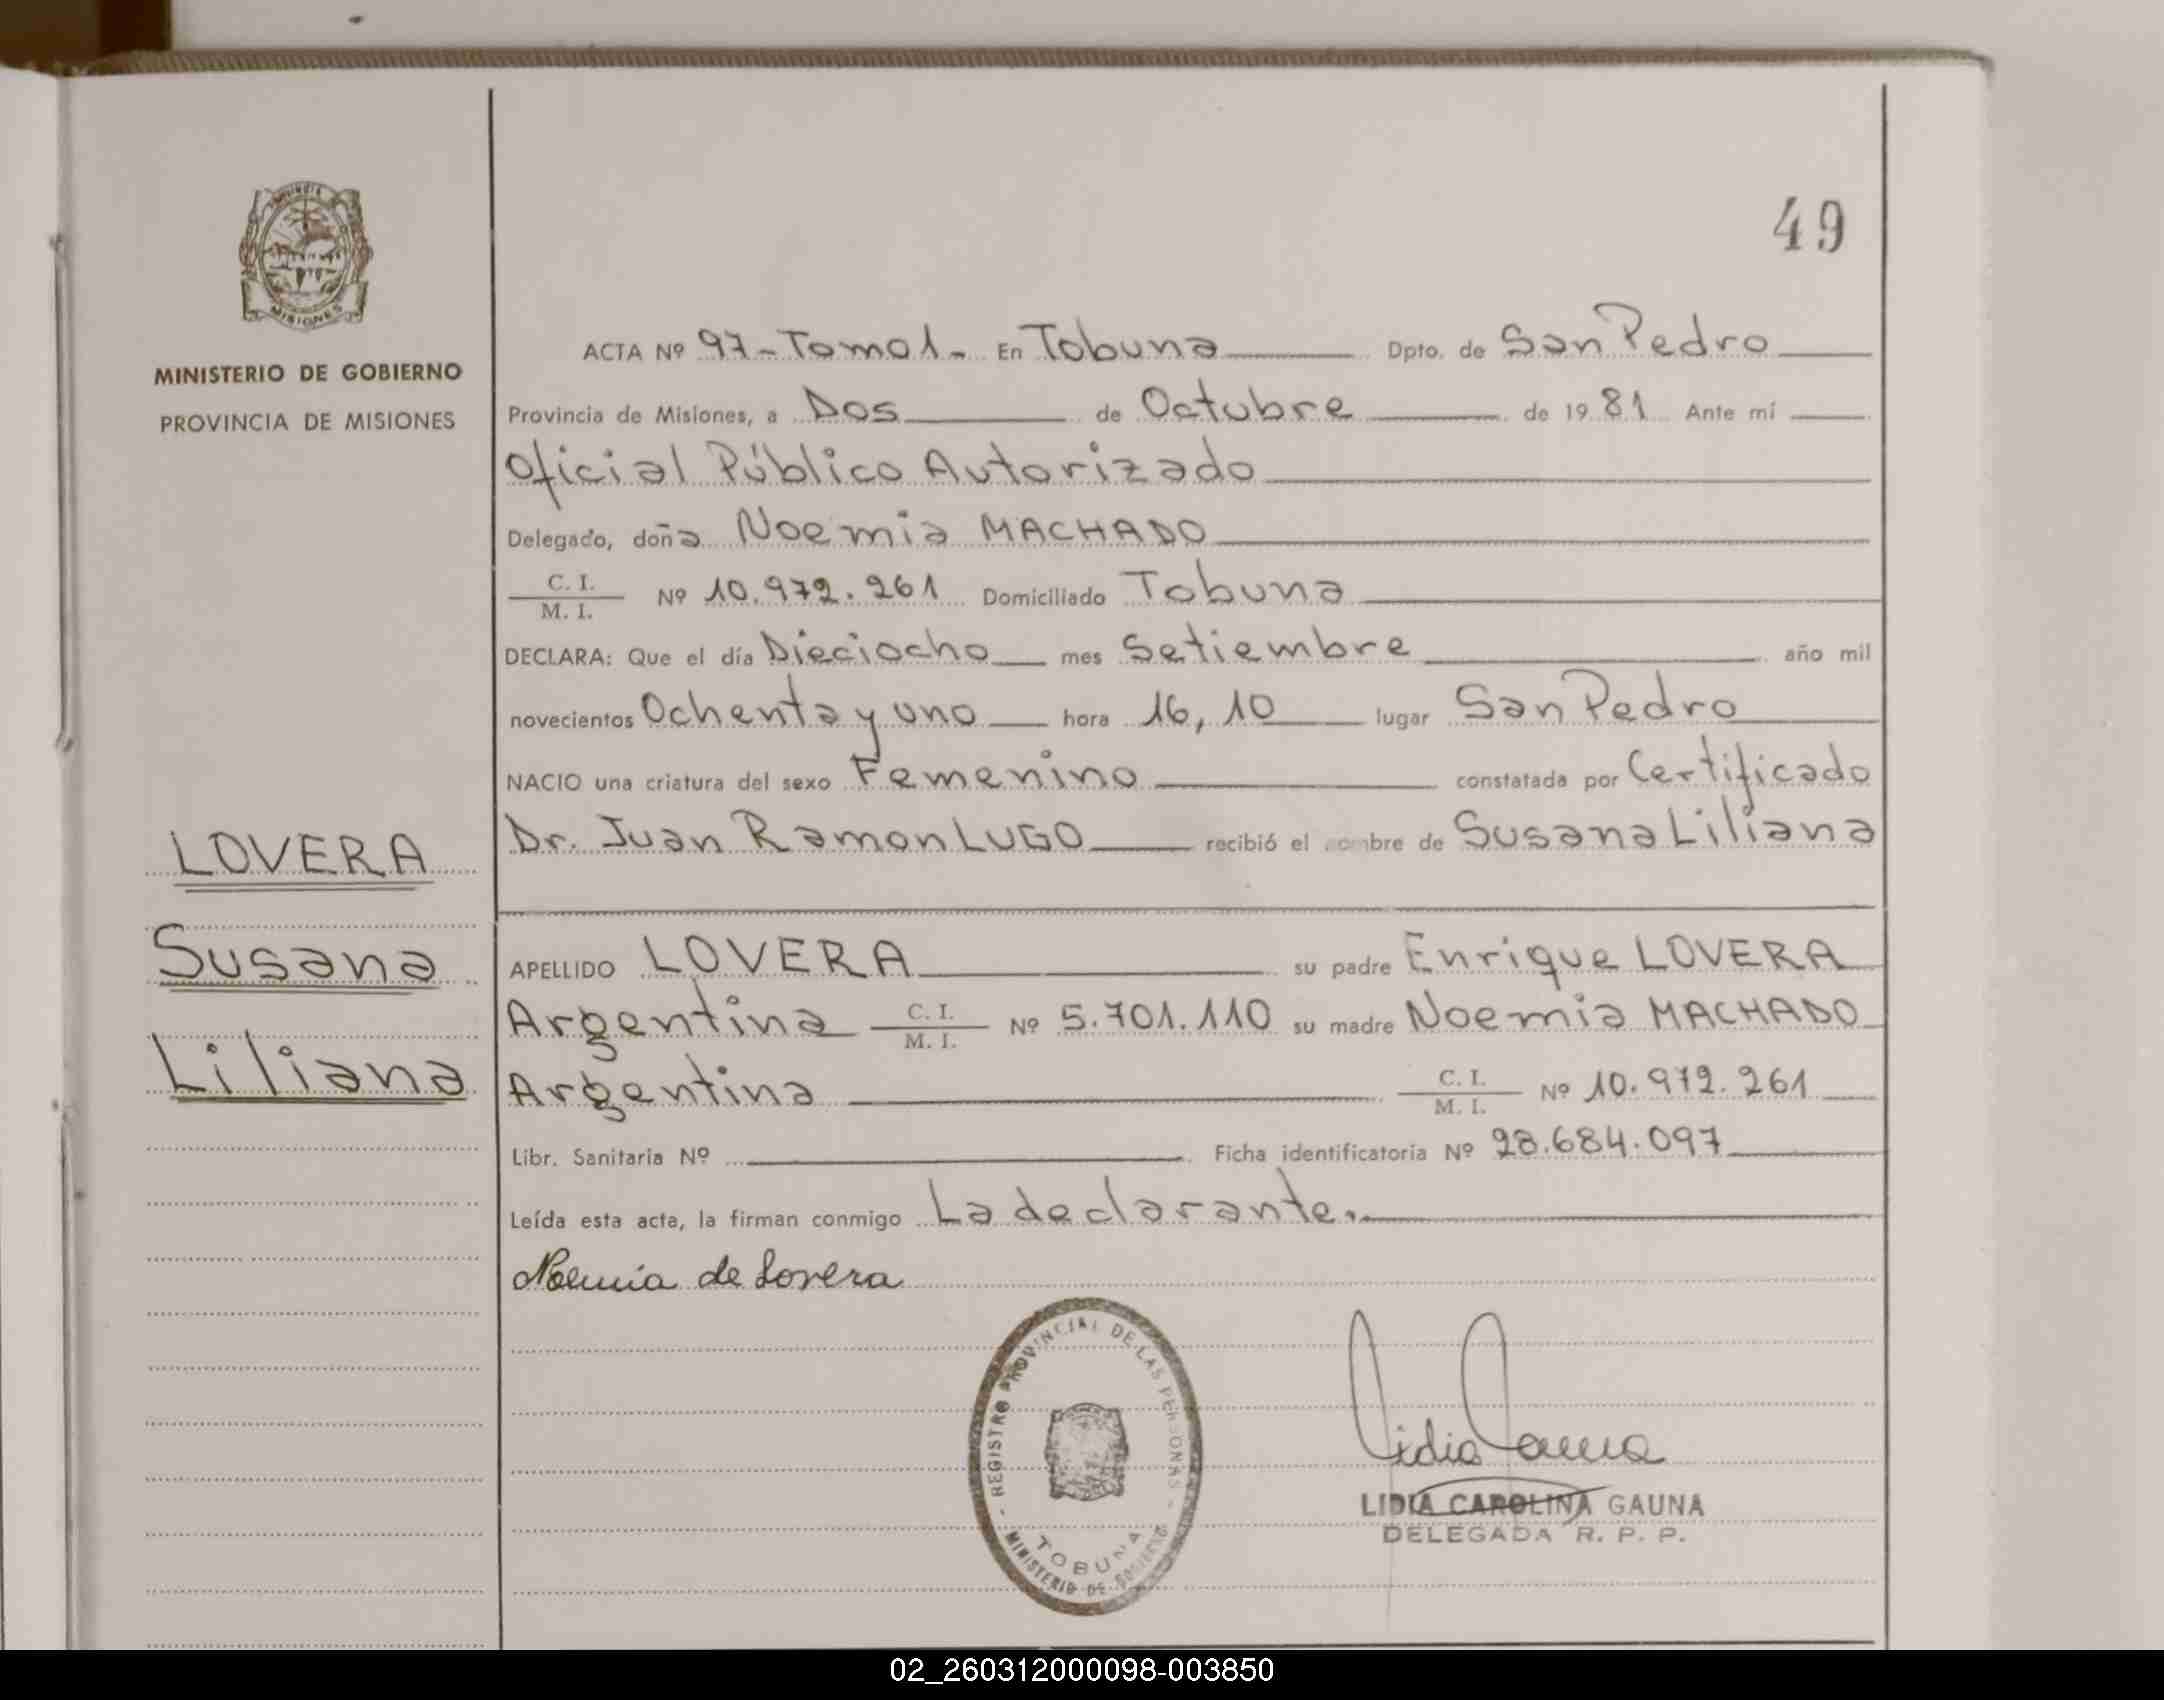 49
MINISTERIO DE GOBIERNO
PROVINCIA DE MISIONES
MISIONES
ACTA Nº 97-Tomo1- En Tobuna Dpto. de San Pedro
Provincia de Misiones, a Dos de Octubre de 1981 Ante mí
Oficial Público Autorizado
Delegado, doña Noemia MACHADO
C. I.
M. I. Nº 10.972.261 Domiciliado Tobuna
DECLARA: Que el día Dieciocho mes Setiembre año mil
novecientos Ochenta y uno hora 16,10 lugar San Pedro
NACIO una criatura del sexo Femenino constatada por Certificado
Dr. Juan Ramon LUGO recibió el nombre de Susana Liliana
LOVERA
Susana
Liliana
APELLIDO LOVERA su padre Enrique LOVERA
Argentina C. I. M. I. Nº 5.701.110 su madre Noemia MACHADO
Argentina C. I. M. I. Nº 10.972.261
Libr. Sanitaria Nº Ficha identificatoria Nº 28.684.097
Leída esta acta, la firman conmigo La declarante.
Noemia de Lovera
REGISTRO PROVINCIAL DE LAS PERSONAS
TOBUNA
MINISTERIO DE GOBIERNO
Lidia Gauna
LIDIA CAROLINA GAUNA
DELEGADA R. P. P.
02_260312000098-003850